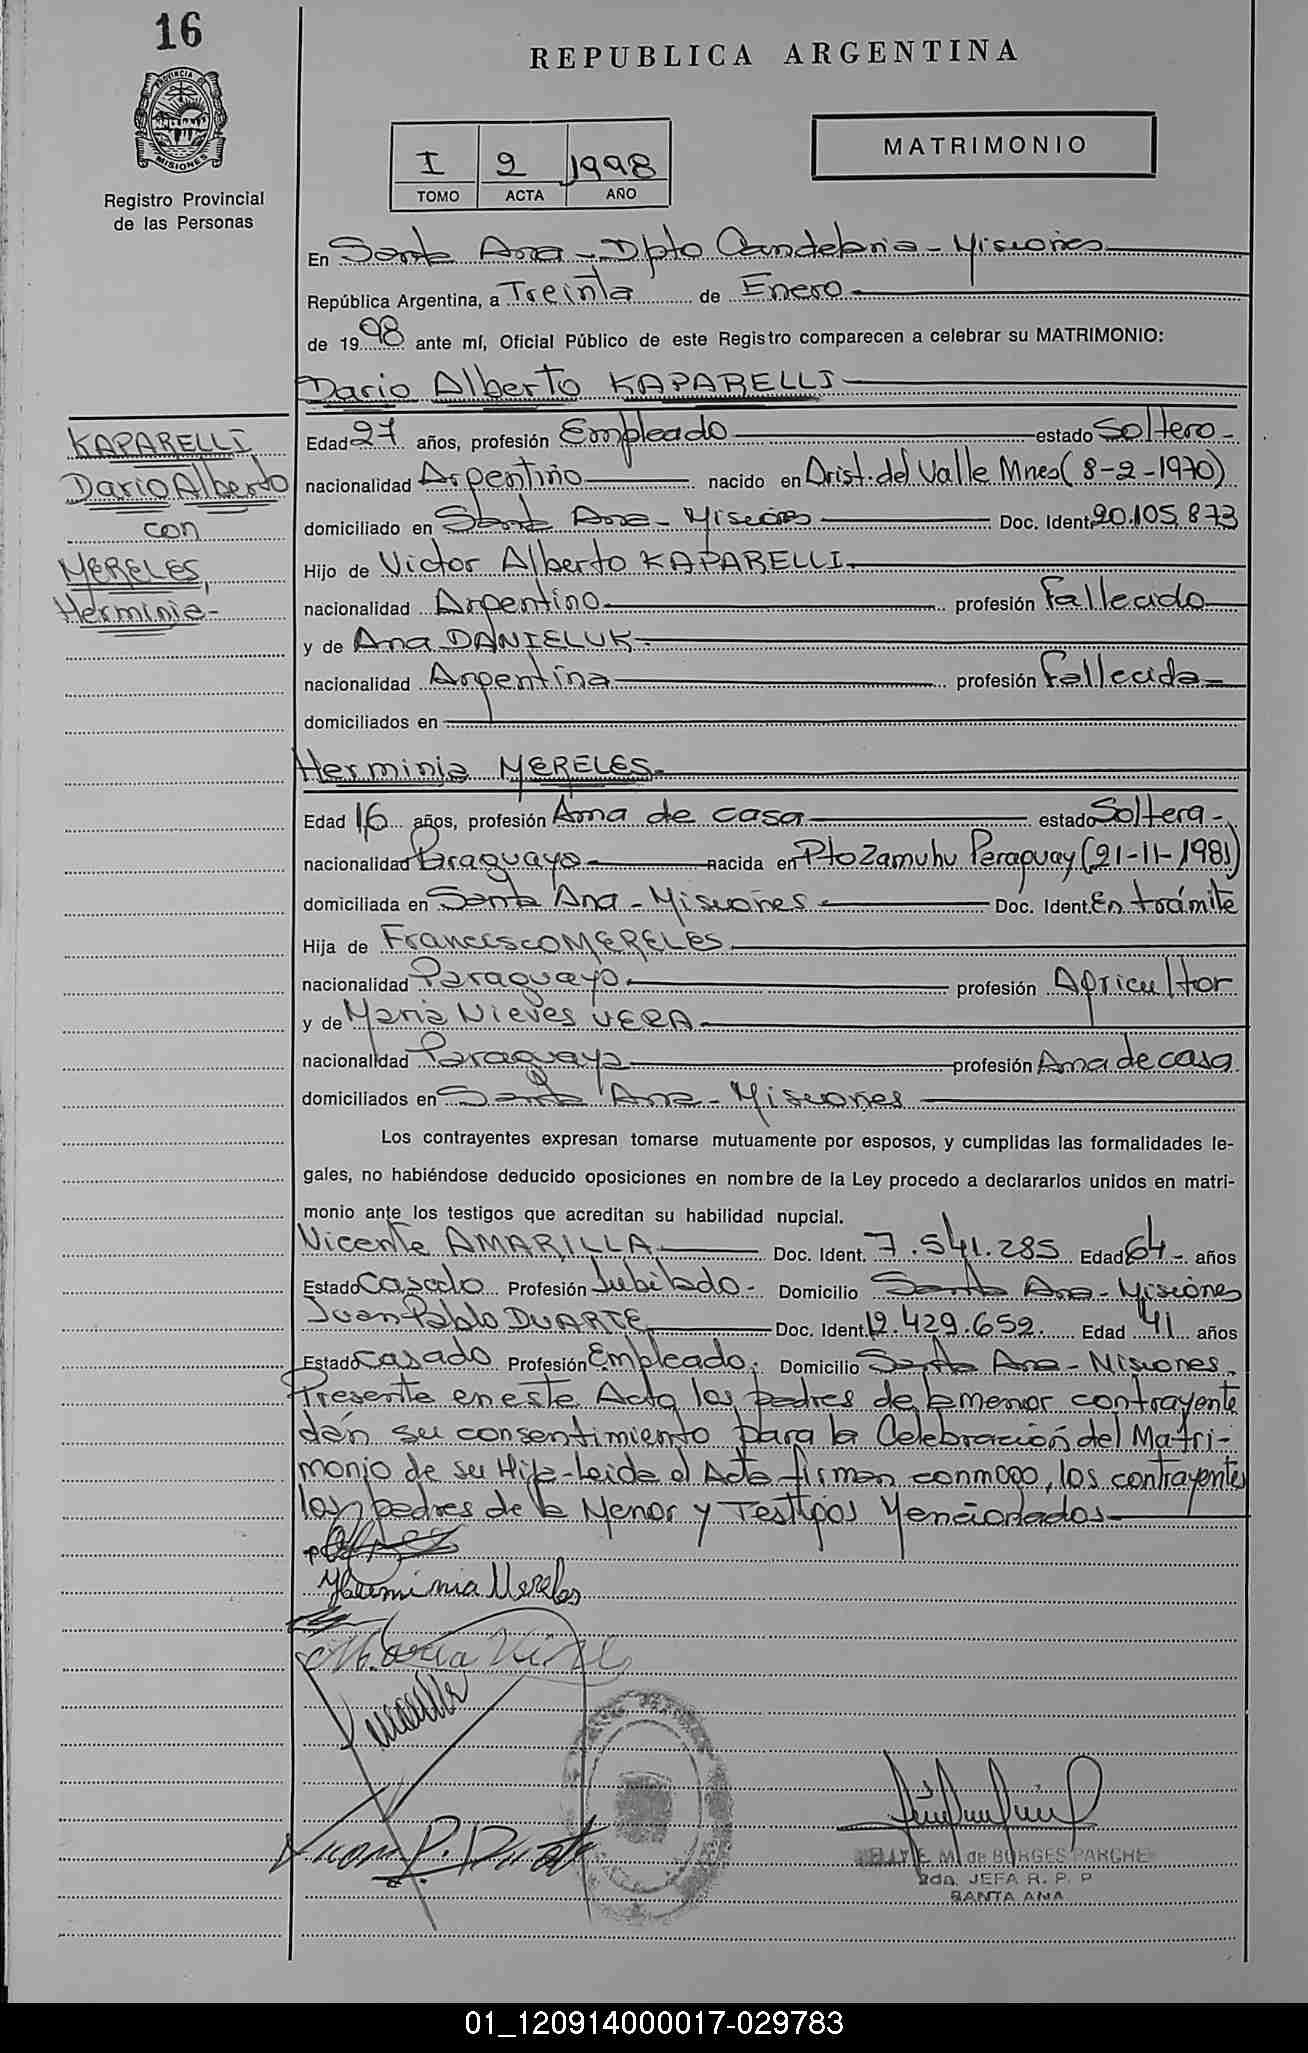 16
REPUBLICA ARGENTINA
PROVINCIA DE
MISIONES
Registro Provincial
de las Personas
I 2 1998
TOMO ACTA AÑO
MATRIMONIO
En Santa Ana - Dpto Candelaria - Misiones
República Argentina, a Treinta de Enero
de 1998 ante mí, Oficial Público de este Registro comparecen a celebrar su MATRIMONIO:
Dario Alberto KAPARELLI
KAPARELLI,
Dario Alberto
con
MERELES,
Herminia-
Edad 27 años, profesión Empleado estado Soltero-
nacionalidad Argentino nacido en Arist. del Valle Mnes (8-2-1970)
domiciliado en Santa Ana - Misiones Doc. Ident. 20.105.873
Hijo de Victor Alberto KAPARELLI
nacionalidad Argentino profesión Fallecido
y de Ana DANIELUK
nacionalidad Argentina profesión Fallecida
domiciliados en
Herminia MERELES
Edad 16 años, profesión Ama de casa estado Soltera-
nacionalidad Paraguaya nacida en Pto Zamuhu Paraguay (21-11-1981)
domiciliada en Santa Ana - Misiones Doc. Ident. En trámite
Hija de Francisco MERELES
nacionalidad Paraguayo profesión Agricultor
y de Maria Nieves VERA
nacionalidad Paraguaya profesión Ama de casa
domiciliados en Santa Ana - Misiones
Los contrayentes expresan tomarse mutuamente por esposos, y cumplidas las formalidades le-
gales, no habiéndose deducido oposiciones en nombre de la Ley procedo a declararlos unidos en matri-
monio ante los testigos que acreditan su habilidad nupcial.
Vicente AMARILLA Doc. Ident. 7.541.285 Edad 64- años
Estado Casado Profesión Jubilado- Domicilio Santa Ana - Misiones
Juan Pablo DUARTE Doc. Ident. 12.429.652. Edad 41 años
Estado Casado Profesión Empleado. Domicilio Santa Ana - Misiones.
Presente en este Acta los padres de la menor contrayente
dán su consentimiento para la Celebración del Matri-
monio de su Hija - Leida el Acta firman conmogo, los contrayentes
los padres de la Menor y Testigos Mencionados
Herminia Mereles
Maria
Juan P. Duarte
M. de BORGES PARCHE
2da. JEFA R. P. P
SANTA ANA
01_120914000017-029783